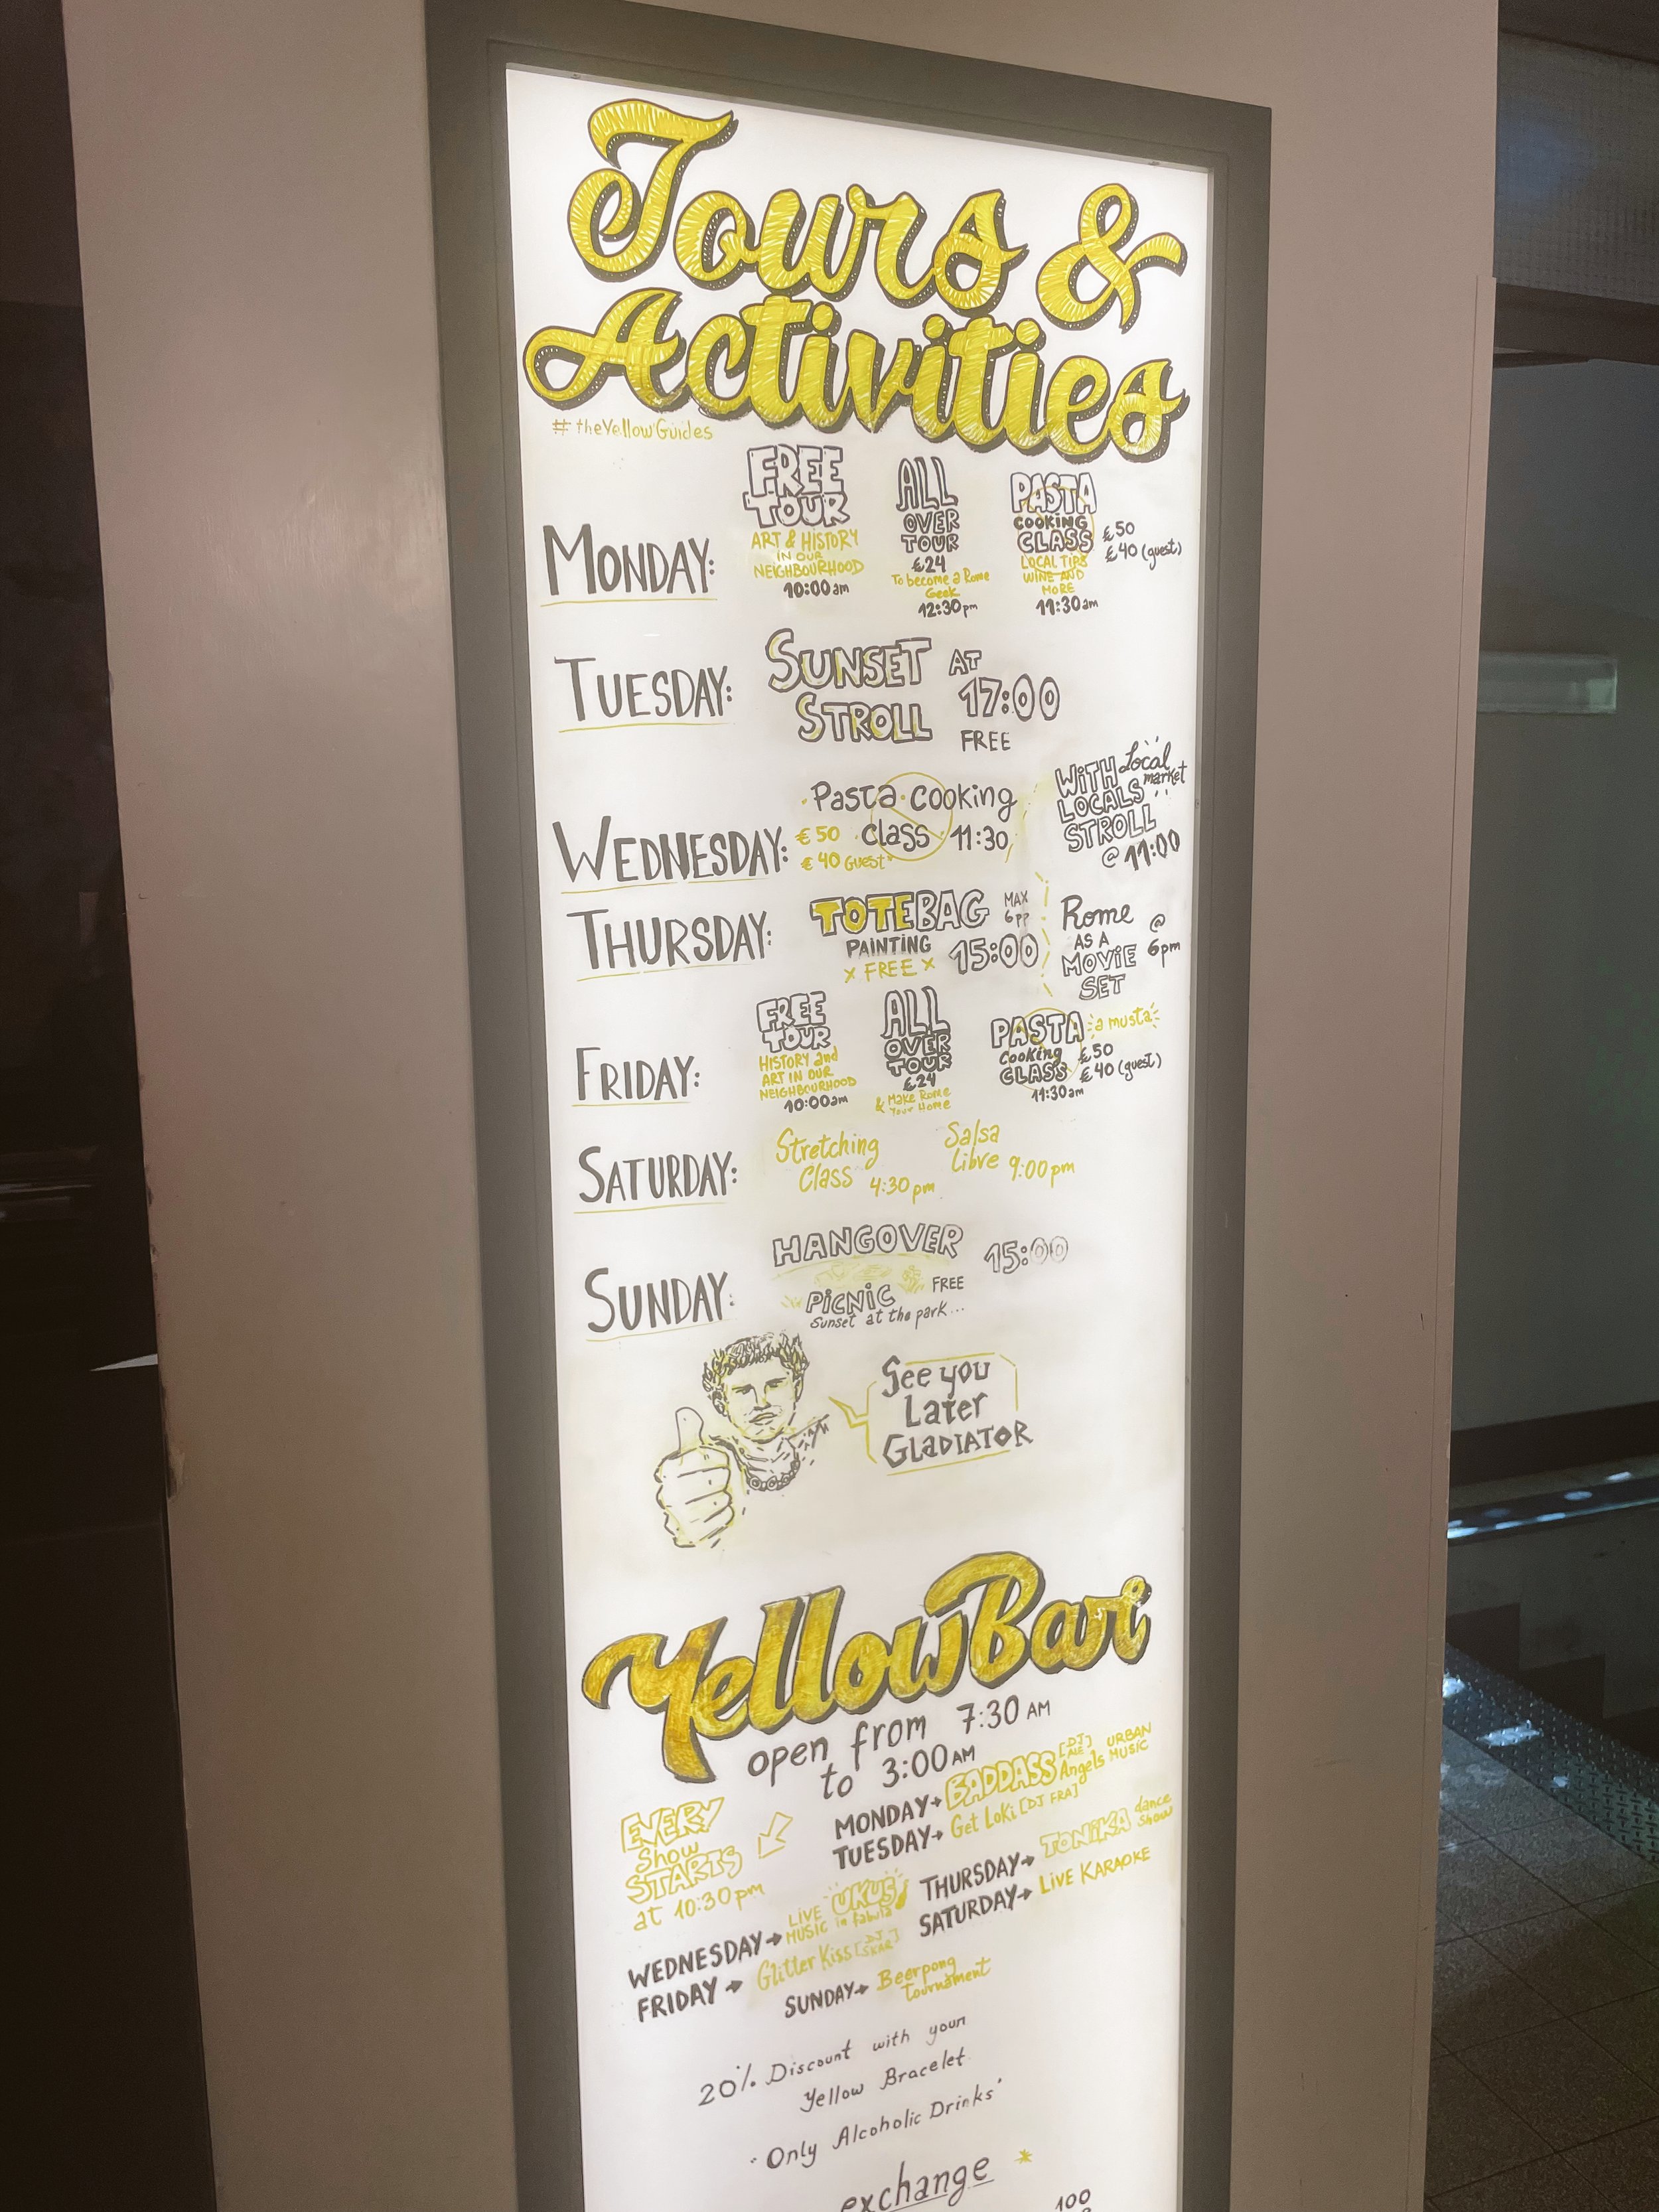 Tours &
Activities
# theYellowGuides
MONDAY:
FREE
TOUR
ART & HISTORY
IN OUR
NEIGHBOURHOOD
10:00am
ALL
OVER
TOUR
€24
To become a Rome
Geek
12:30pm
PASTA
COOKING
CLASS
€50
€40 (guest)
LOCAL TIPS
WINE AND
MORE
11:30am
TUESDAY:
SUNSET
STROLL
AT
17:00
FREE
WEDNESDAY:
Pasta cooking
€50 class 11:30
€40 Guest*
WITH Local
LOCALS market
STROLL
@ 11:00
THURSDAY:
TOTEBAG
PAINTING
x FREE x
MAX
6PP
15:00
Rome @
AS A 6pm
MOVIE
SET
FRIDAY:
FREE
TOUR
HISTORY and
ART IN OUR
NEIGHBOURHOOD
10:00am
ALL
OVER
TOUR
€24
& Make Rome
Your Home
PASTA a must
cooking €50
CLASS €40 (guest)
11:30am
SATURDAY:
Stretching
Class 4:30pm
Salsa
Libre 9:00pm
SUNDAY:
HANGOVER 15:00
PICNIC FREE
Sunset at the park...
See you
Later
GLADIATOR
YellowBar
open from 7:30 AM
to 3:00 AM
EVERY
Show
STARTS
at 10:30pm
MONDAY→ BADDASS Angels URBAN MUSIC
TUESDAY→ Get Loki [DJ FRA]
WEDNESDAY→ LIVE MUSIC UKUS in fabula
THURSDAY→ TONIKA dance show
FRIDAY→ Glitter Kiss [DJ SKAR]
SATURDAY→ LIVE KARAOKE
SUNDAY→ Beerpong
Tournament
20% Discount with your
Yellow Bracelet
"Only Alcoholic Drinks"
exchange
100